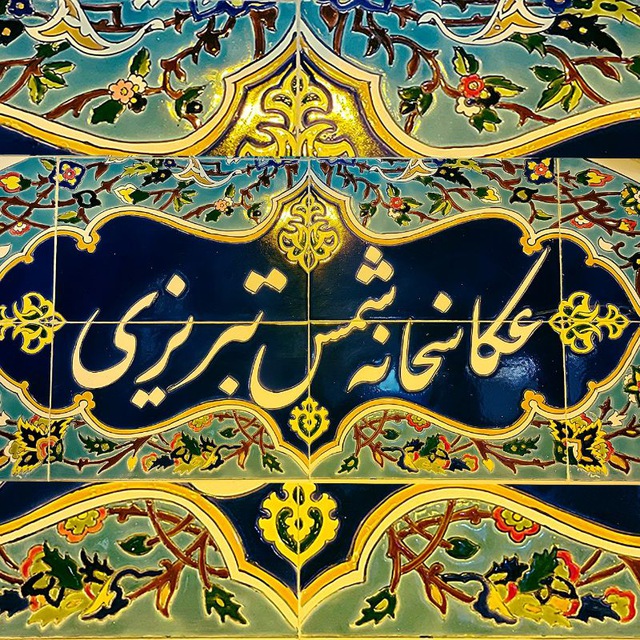 عکاسخانه شمس تبریزی